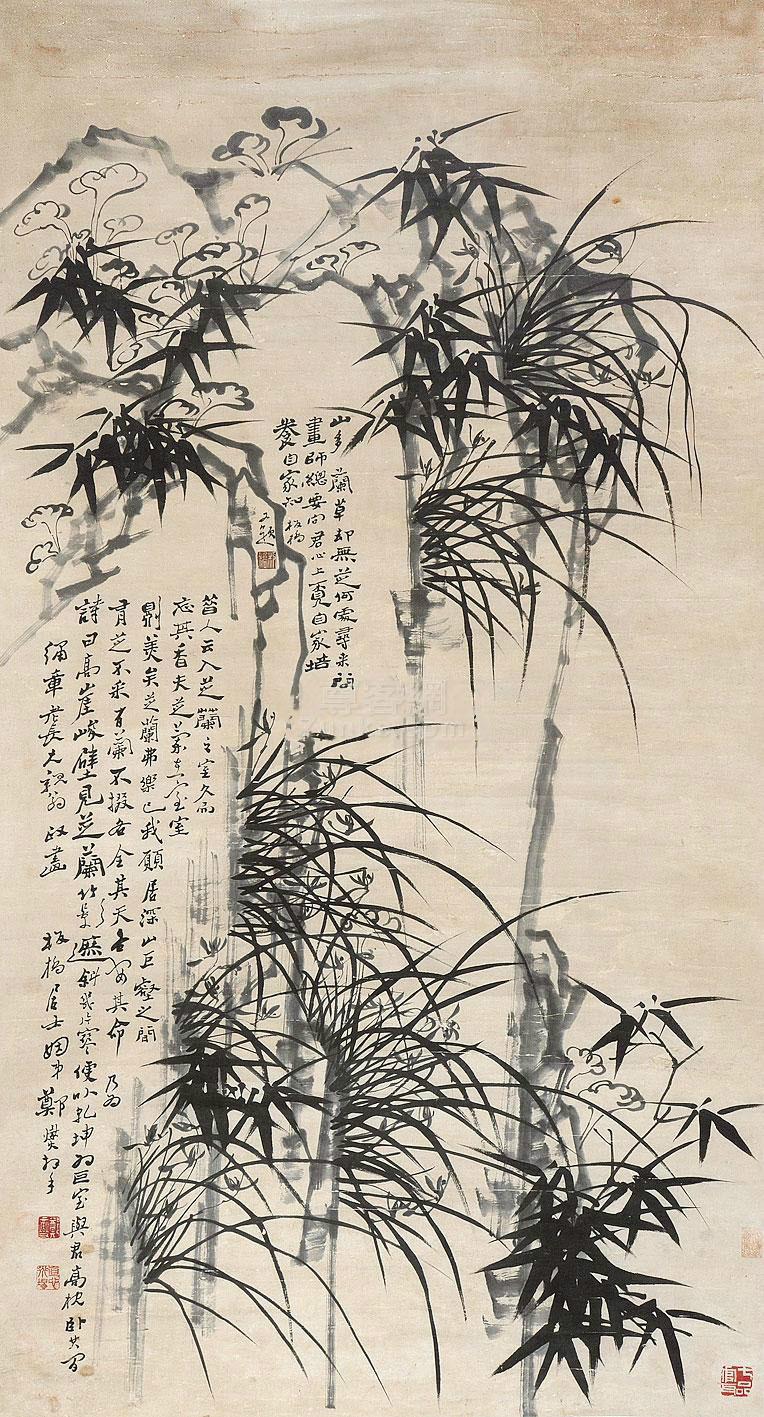 山多蘭草却無芝何處尋来問
畫師總要向君心上覓自家培
養自家知 板橋
又題
昔人云入芝蘭之室久而
忘其香夫芝蘭在室室
則美矣芝蘭弗樂也我願居深山巨壑之間
有芝不采有蘭不掇各全其天各安其命 乃為
詩曰高崖峻壁見芝蘭竹影遮斜幾片寒便以乾坤為巨室與君高枕臥其間
章老長親翁 政畫 板橋居士姻弟鄭燮拜手